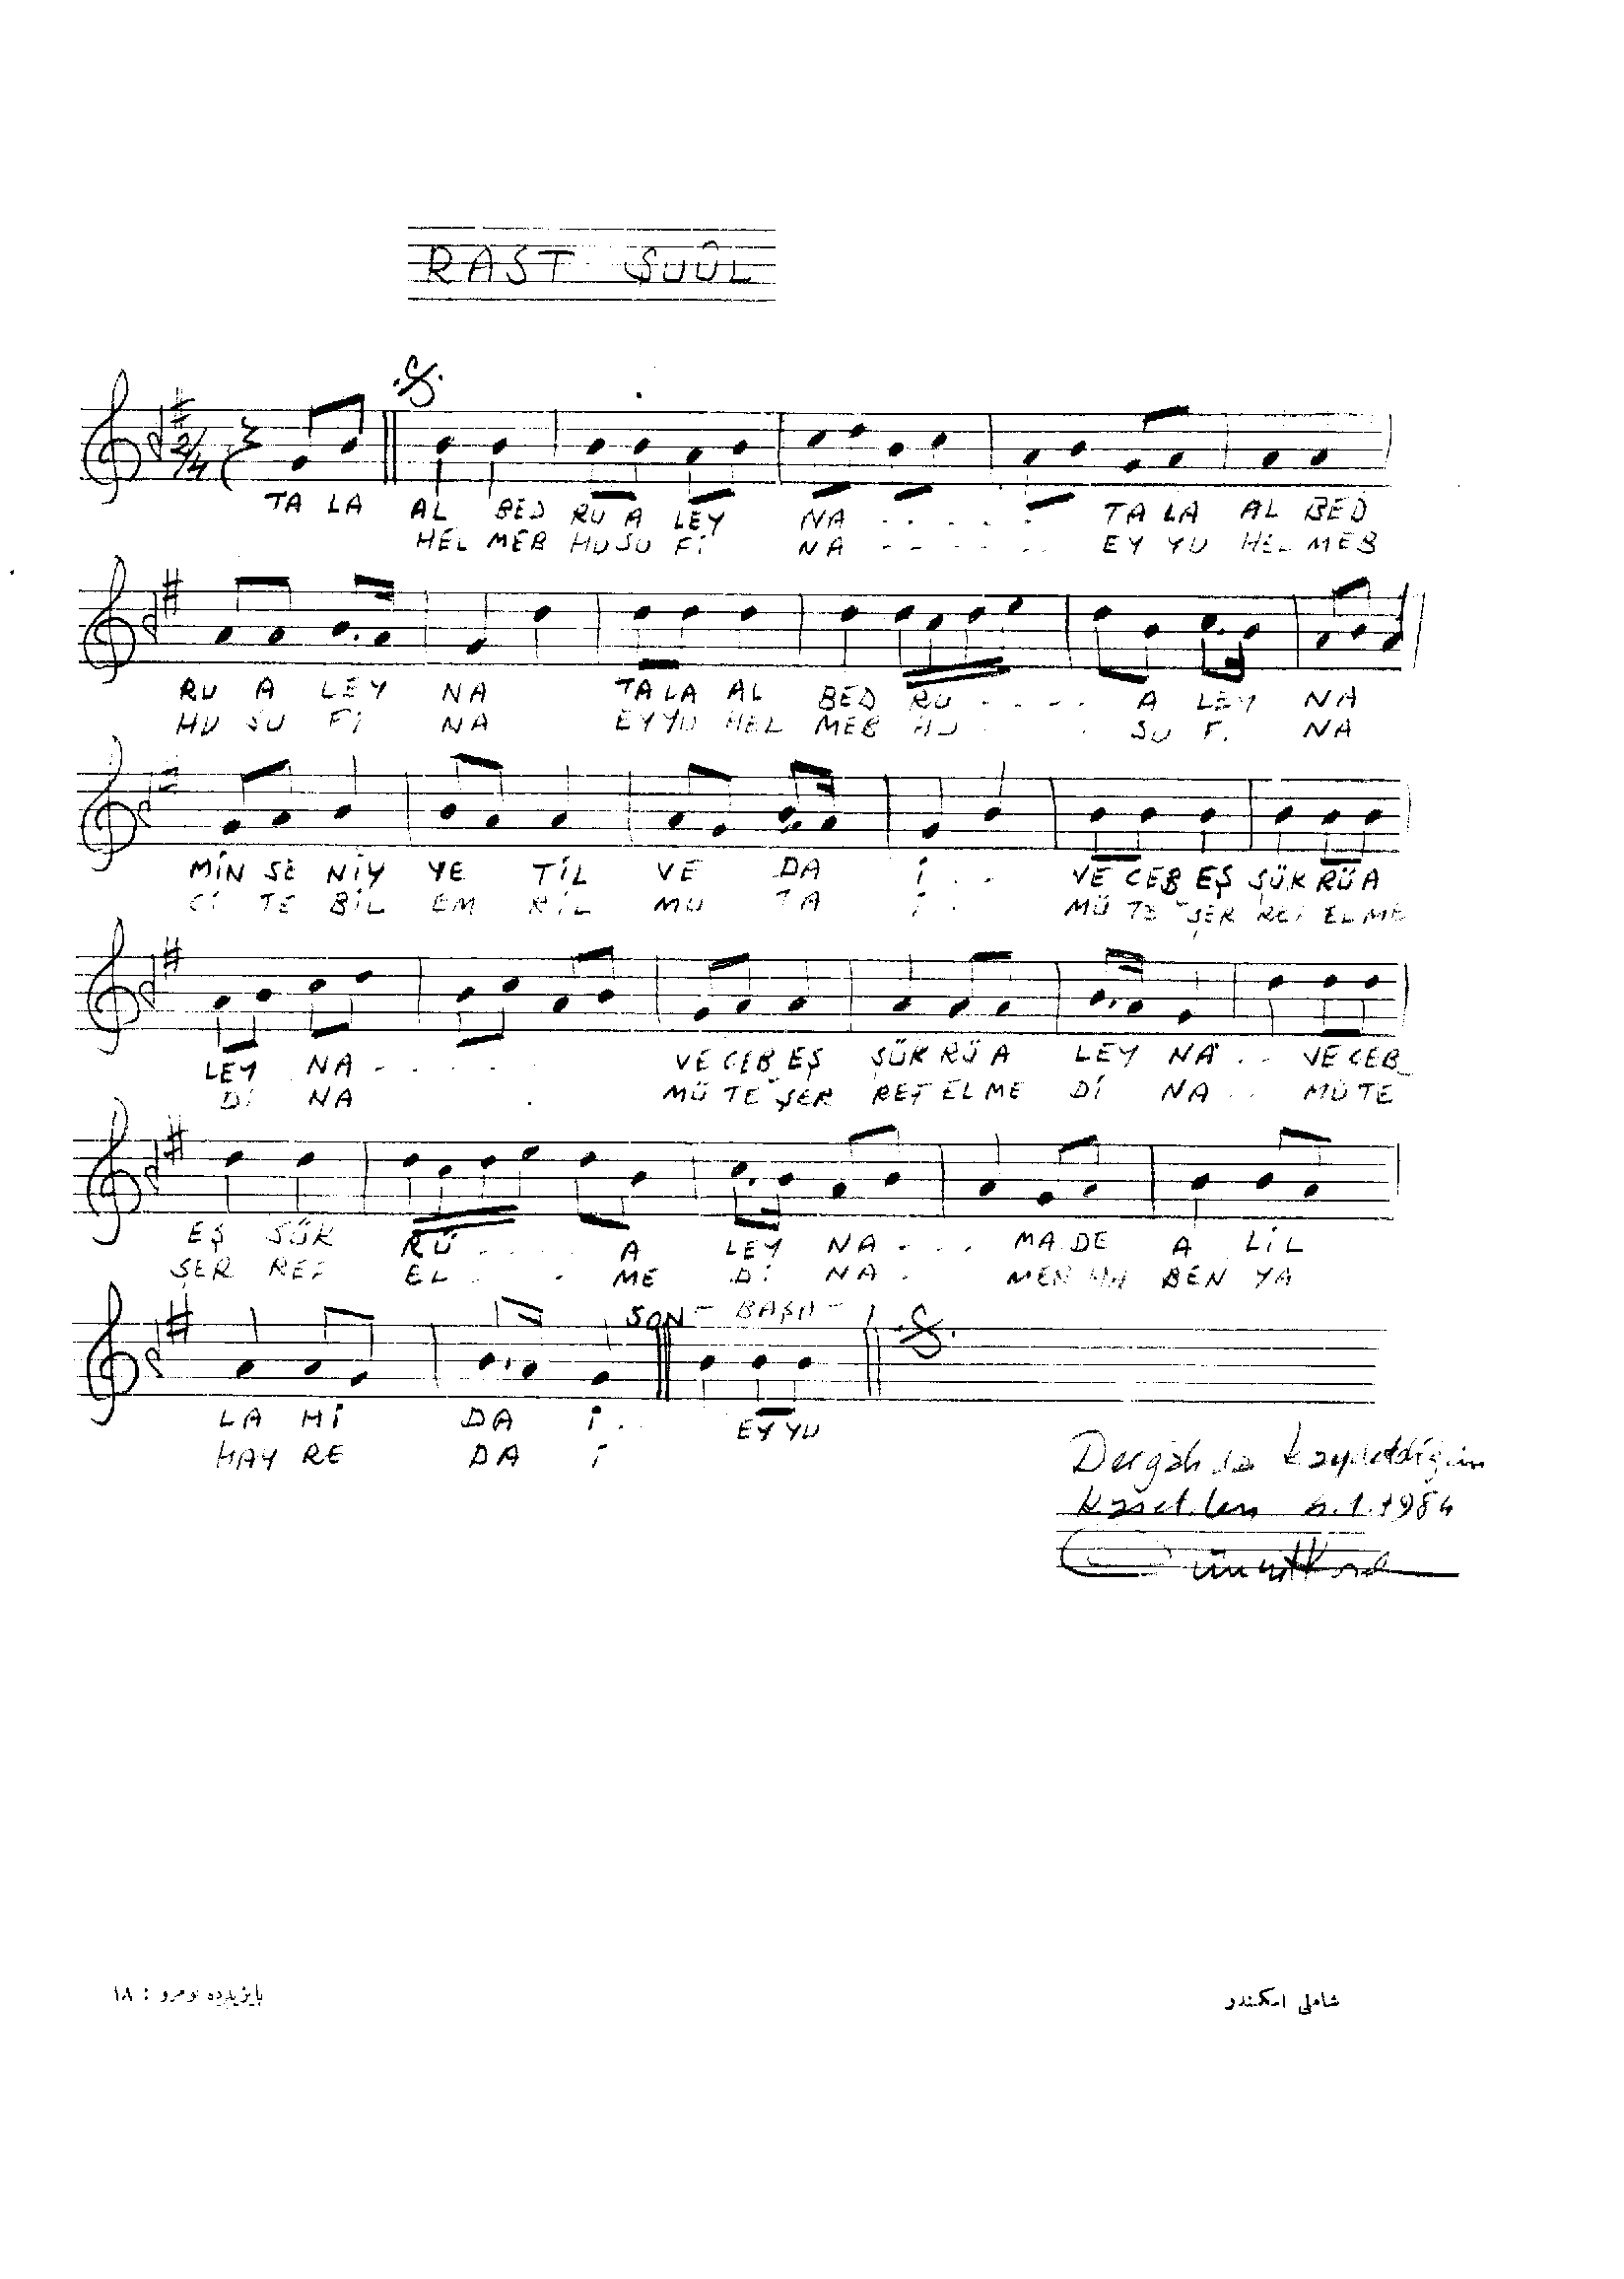 RAST ŞUÛL
2/4
TA LA AL BED RU A LEY NA . . . . . TA LA AL BED
HEL MEB HU SU Fİ NA - - - . . EY YU HEL MEB
RU A LEY NA TA LA AL BED RU . . . . A LEY NA
HU SU Fİ NA EY YU HEL MEB HU . . SU F. NA
MİN SE NİY YE TİL VE DA İ . . VE CEB EŞ ŞÜK RÜ A
Cİ TE BİL EM RİL MU TA İ . MÜ TE ŞER REF EL ME
LEY NA - . . . . VE CEB EŞ ŞÜK RÜ A LEY NA . . VE CEB
Dİ NA . MÜ TE ŞER REF EL ME Dİ NA . . MÜ TE
EŞ ŞÜK RÜ . . . . A LEY NA - . . MA DE A LİL
ŞER REF EL . . . ME Dİ NA . MER HA BEN YA
SON - BAŞA -
LA Hİ DA İ . . EY YU
HAY RE DA İ
Dergâhda kaydettiğim
kasetden 6.1.1984
بايزيدده نومرو : ١٨
شاملى اسكندر